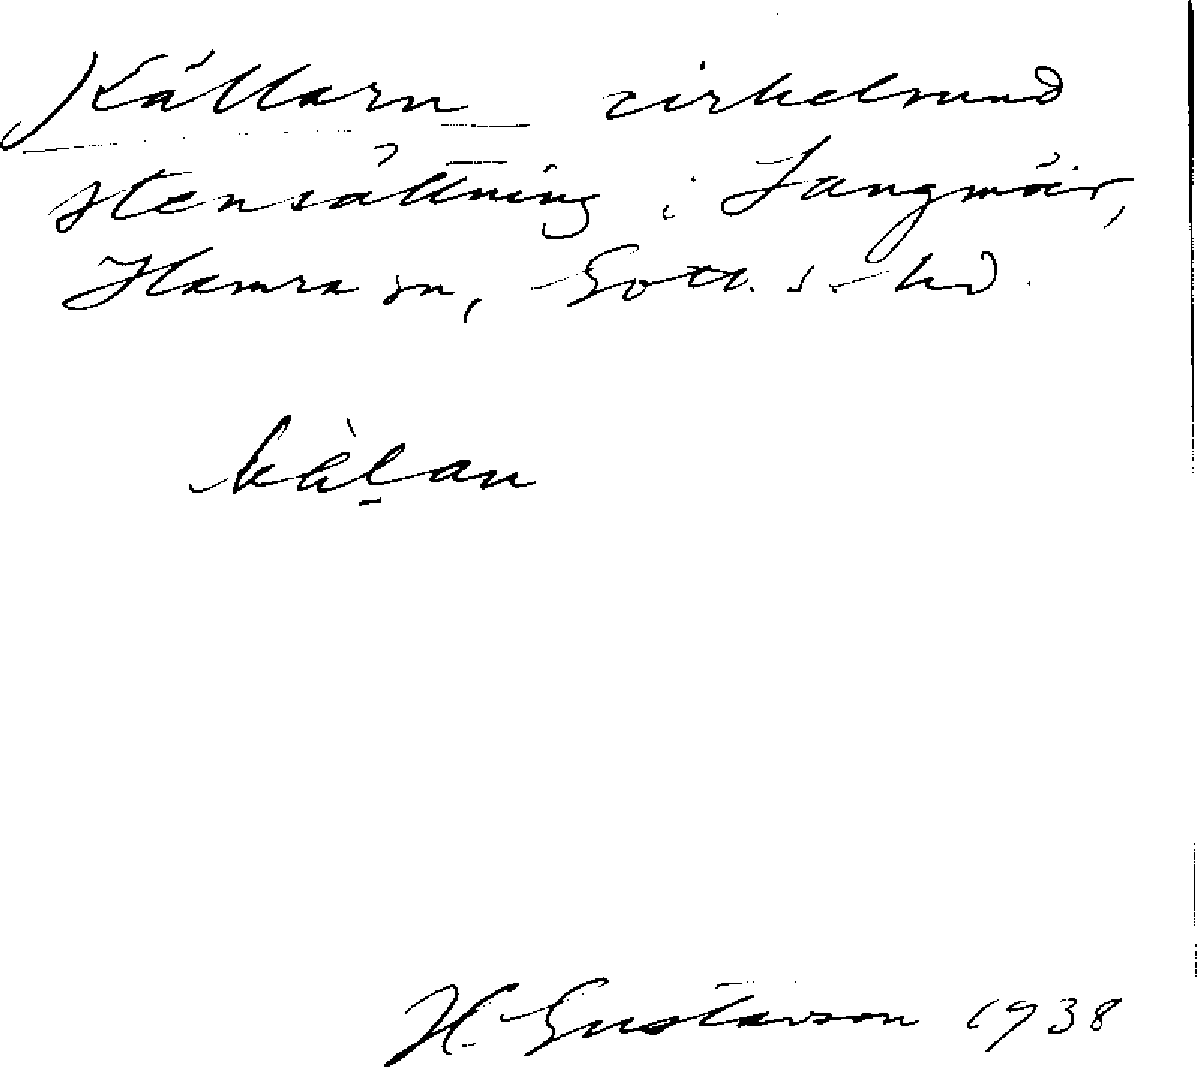 Källarn cirkelrund
stensättning i Langmöir,
Hamra sn, Gotl. s. hd.
kälan
H. Gustavson 1938